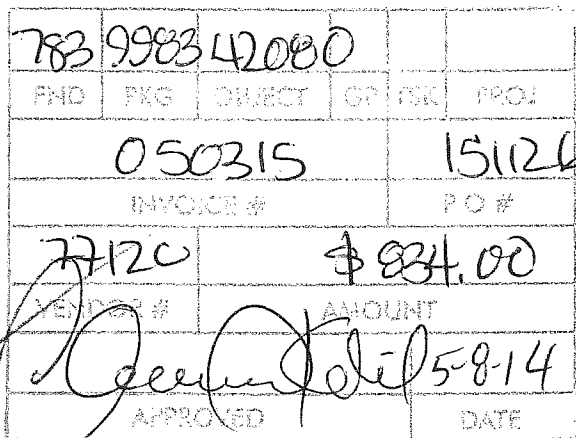 783 9983 42080
FND PKG OBJECT GP TSK PROJ
050315 15112
INVOICE # P O #
7712C $ 834.00
VENDOR # AMOUNT
5-8-14
APPROVED DATE